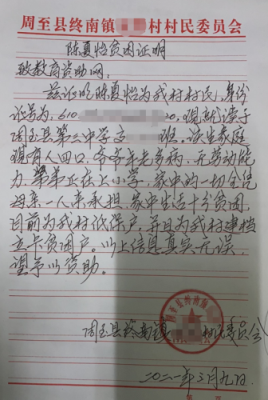 周至县终南镇 村村民委员会
陈真怡贫困证明
致教育资助网:
兹证明陈真怡为我村村民,身份
证号为:610 0,现就读于
周至县第二中学高 班,该生家庭
现有人四口,爷爷年老多病,无劳动能
力,弟弟正在上小学,家中的一切全凭
母亲一人来承担,家中生活十分贫困,
目前为我村低保户,并且为我村建档
立卡贫困户。以上信息真实无误,
望予以资助。
周至县终南镇 村民委员会
二〇二一年三月九日